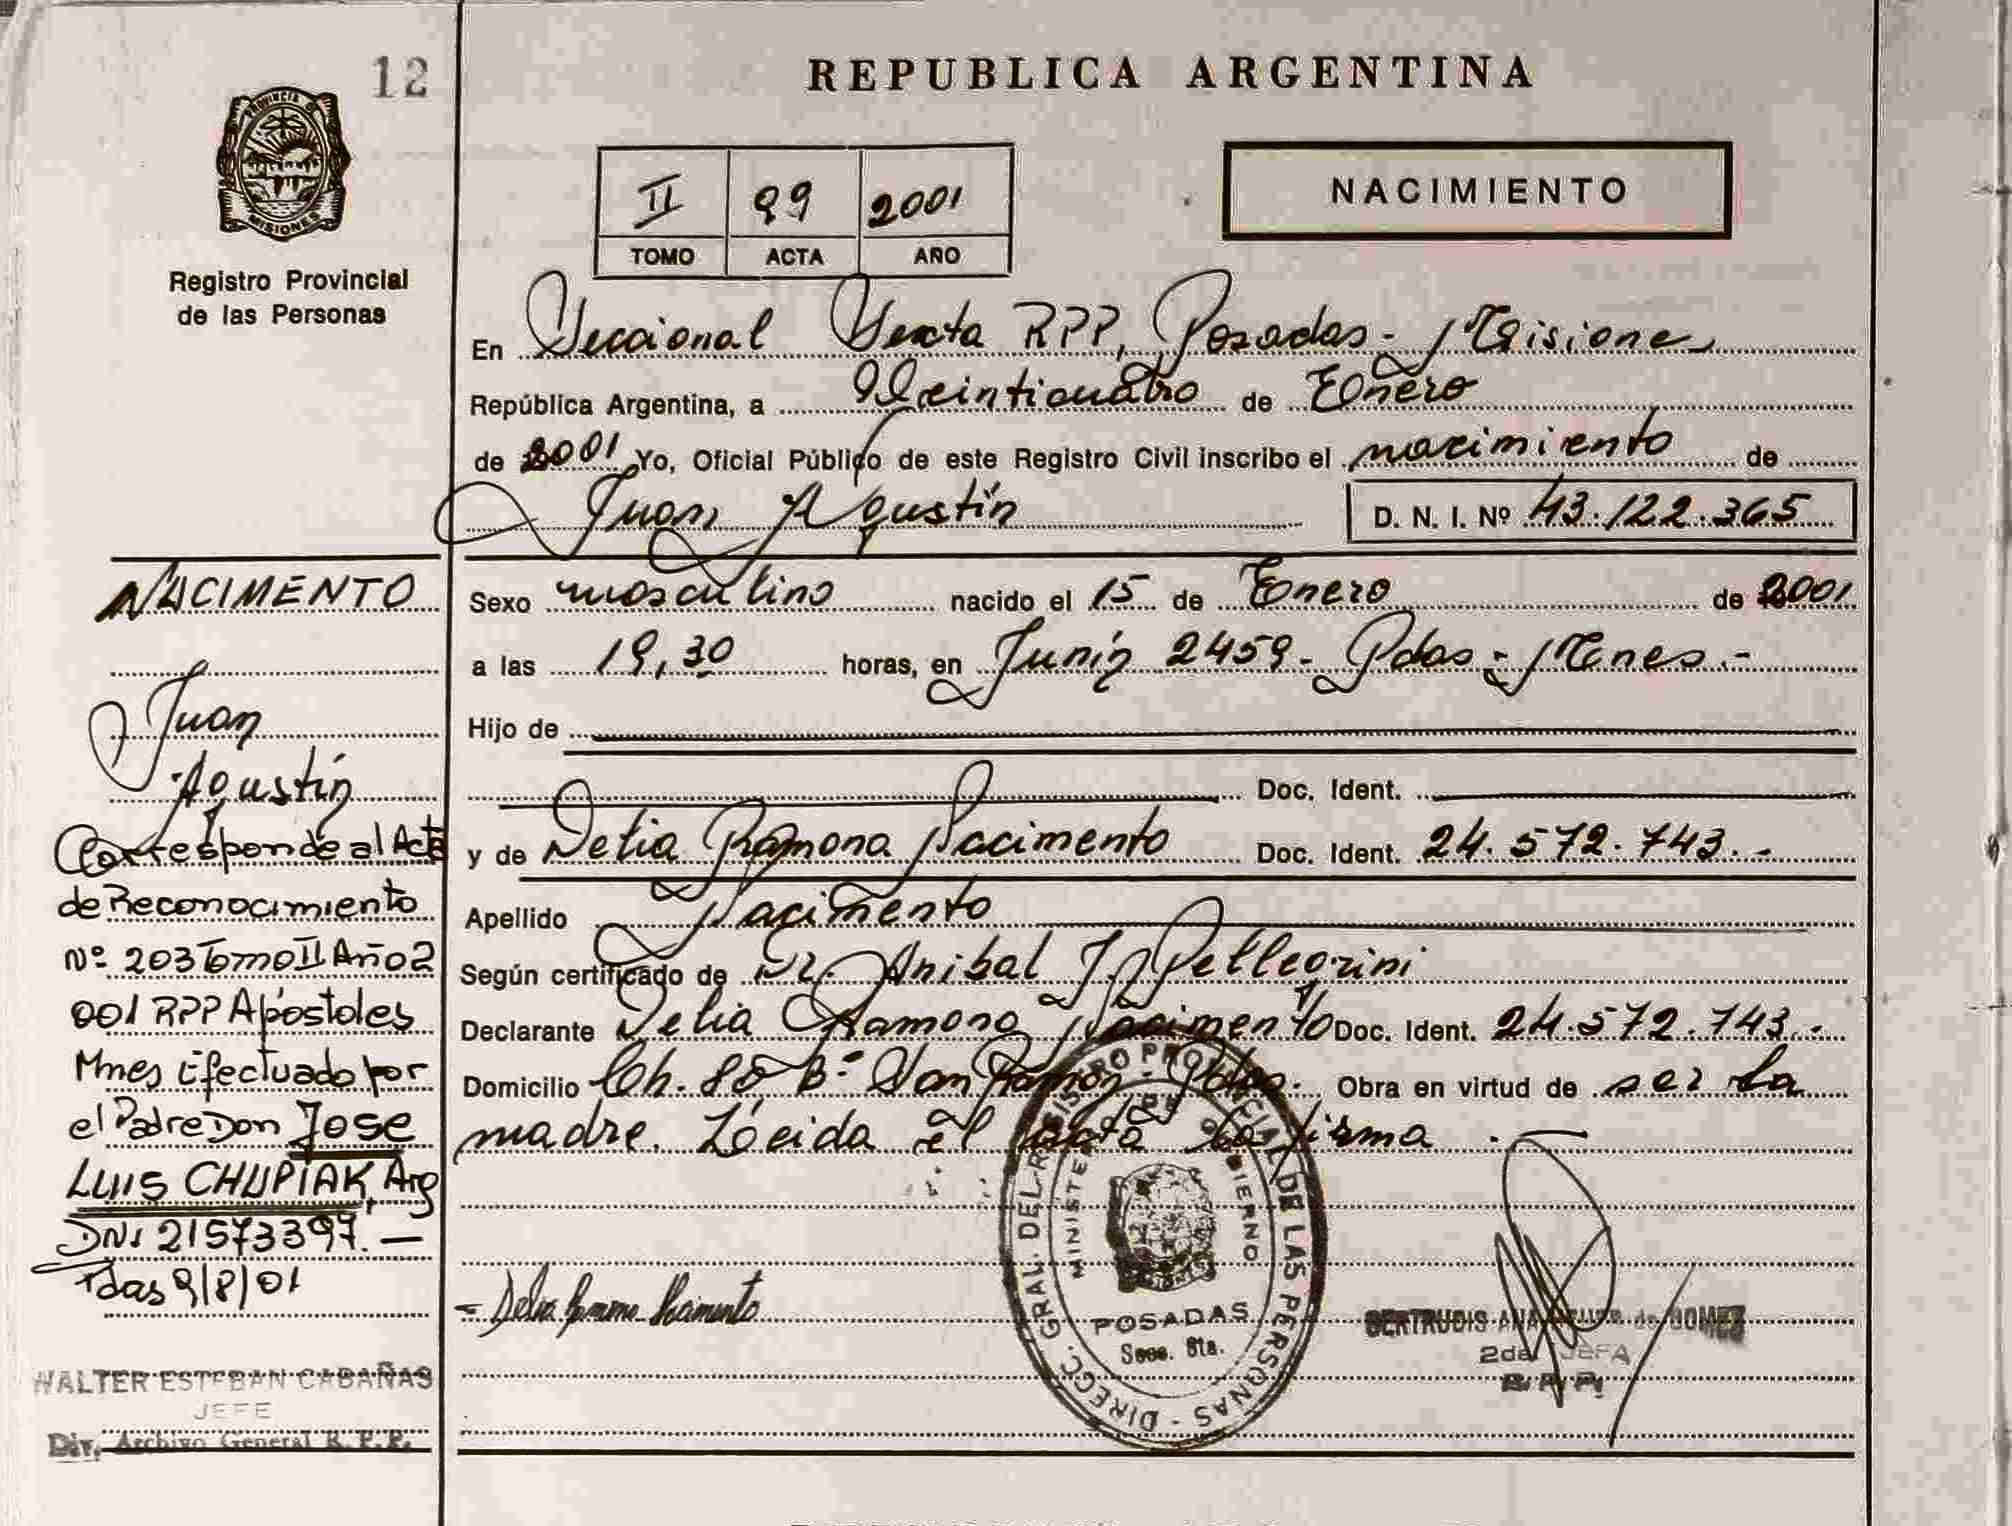 12
PROVINCIA DE
MISIONES
Registro Provincial
de las Personas
REPUBLICA ARGENTINA
II 99 2001
TOMO ACTA AÑO
NACIMIENTO
En Seccional Sexta RPP, Posadas - Misiones
República Argentina, a Veinticuatro de Enero
de 2001 Yo, Oficial Público de este Registro Civil inscribo el nacimiento de
Juan Agustín D. N. I. Nº 43.122.365
Sexo masculino nacido el 15 de Enero de 2001
a las 19,30 horas, en Junín 2459 - Pdas - Mnes.-
Hijo de
Doc. Ident.
y de Delia Ramona Nacimento Doc. Ident. 24.572.743.-
Apellido Nacimento
Según certificado de Dr. Anibal J. Pellegrini
Declarante Delia Ramona Nacimento Doc. Ident. 24.572.743.-
Domicilio Ch. 80 Bº San Ramón - Pdas. Obra en virtud de ser la
madre. Léeida el acta la firma.
NACIMENTO
Juan
Agustín
Corresponde al Acta
de Reconocimiento
Nº 203 Tomo II Año 2
001 RPP Apóstoles
Mnes Efectuado por
el Padre Don Jose
LUIS CHUPIAK, Arg
DNI 21573397.—
Pdas 9/8/01
WALTER ESTEBAN CABAÑAS
JEFE
Div. Archivo General R.P.P.
Delia Ramona Nacimento
DIRECC. GRAL. DEL REGISTRO PROVINCIAL DE LAS PERSONAS -
MINISTERIO DE GOBIERNO
MISIONES
POSADAS
Secc. 6ta.
GERTRUDIS ANA de GOMEZ
2da. JEFA
R. P. P.